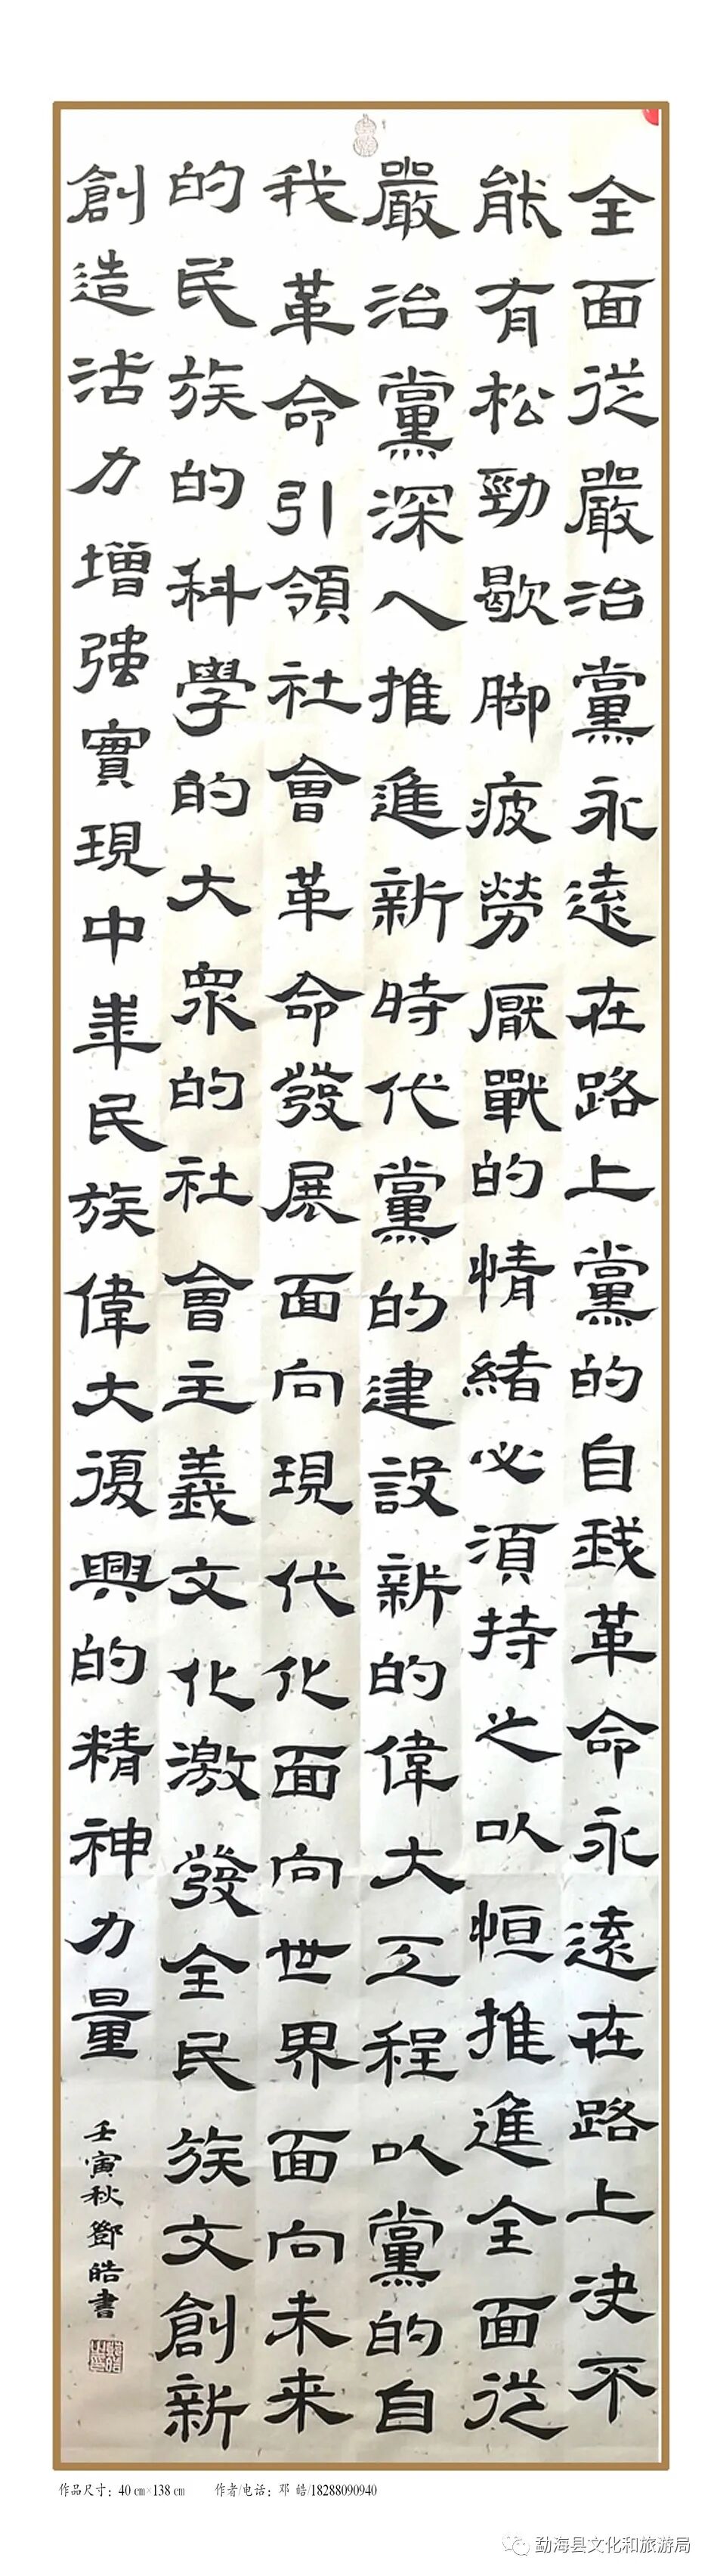 全面從嚴治黨永遠在路上黨的自我革命永遠在路上決不
能有松勁歇脚疲勞厭戰的情緒必須持之以恒推進全面從
嚴治黨深入推進新時代黨的建設新的偉大工程以黨的自
我革命引領社會革命發展面向現代化面向世界面向未来
的民族的科學的大衆的社會主義文化激發全民族文創新
創造活力增强實現中華民族偉大復興的精神力量
壬寅秋鄧皓書
作品尺寸：40 cm×138 cm 作者/电话：邓 皓/18288090940
勐海县文化和旅游局